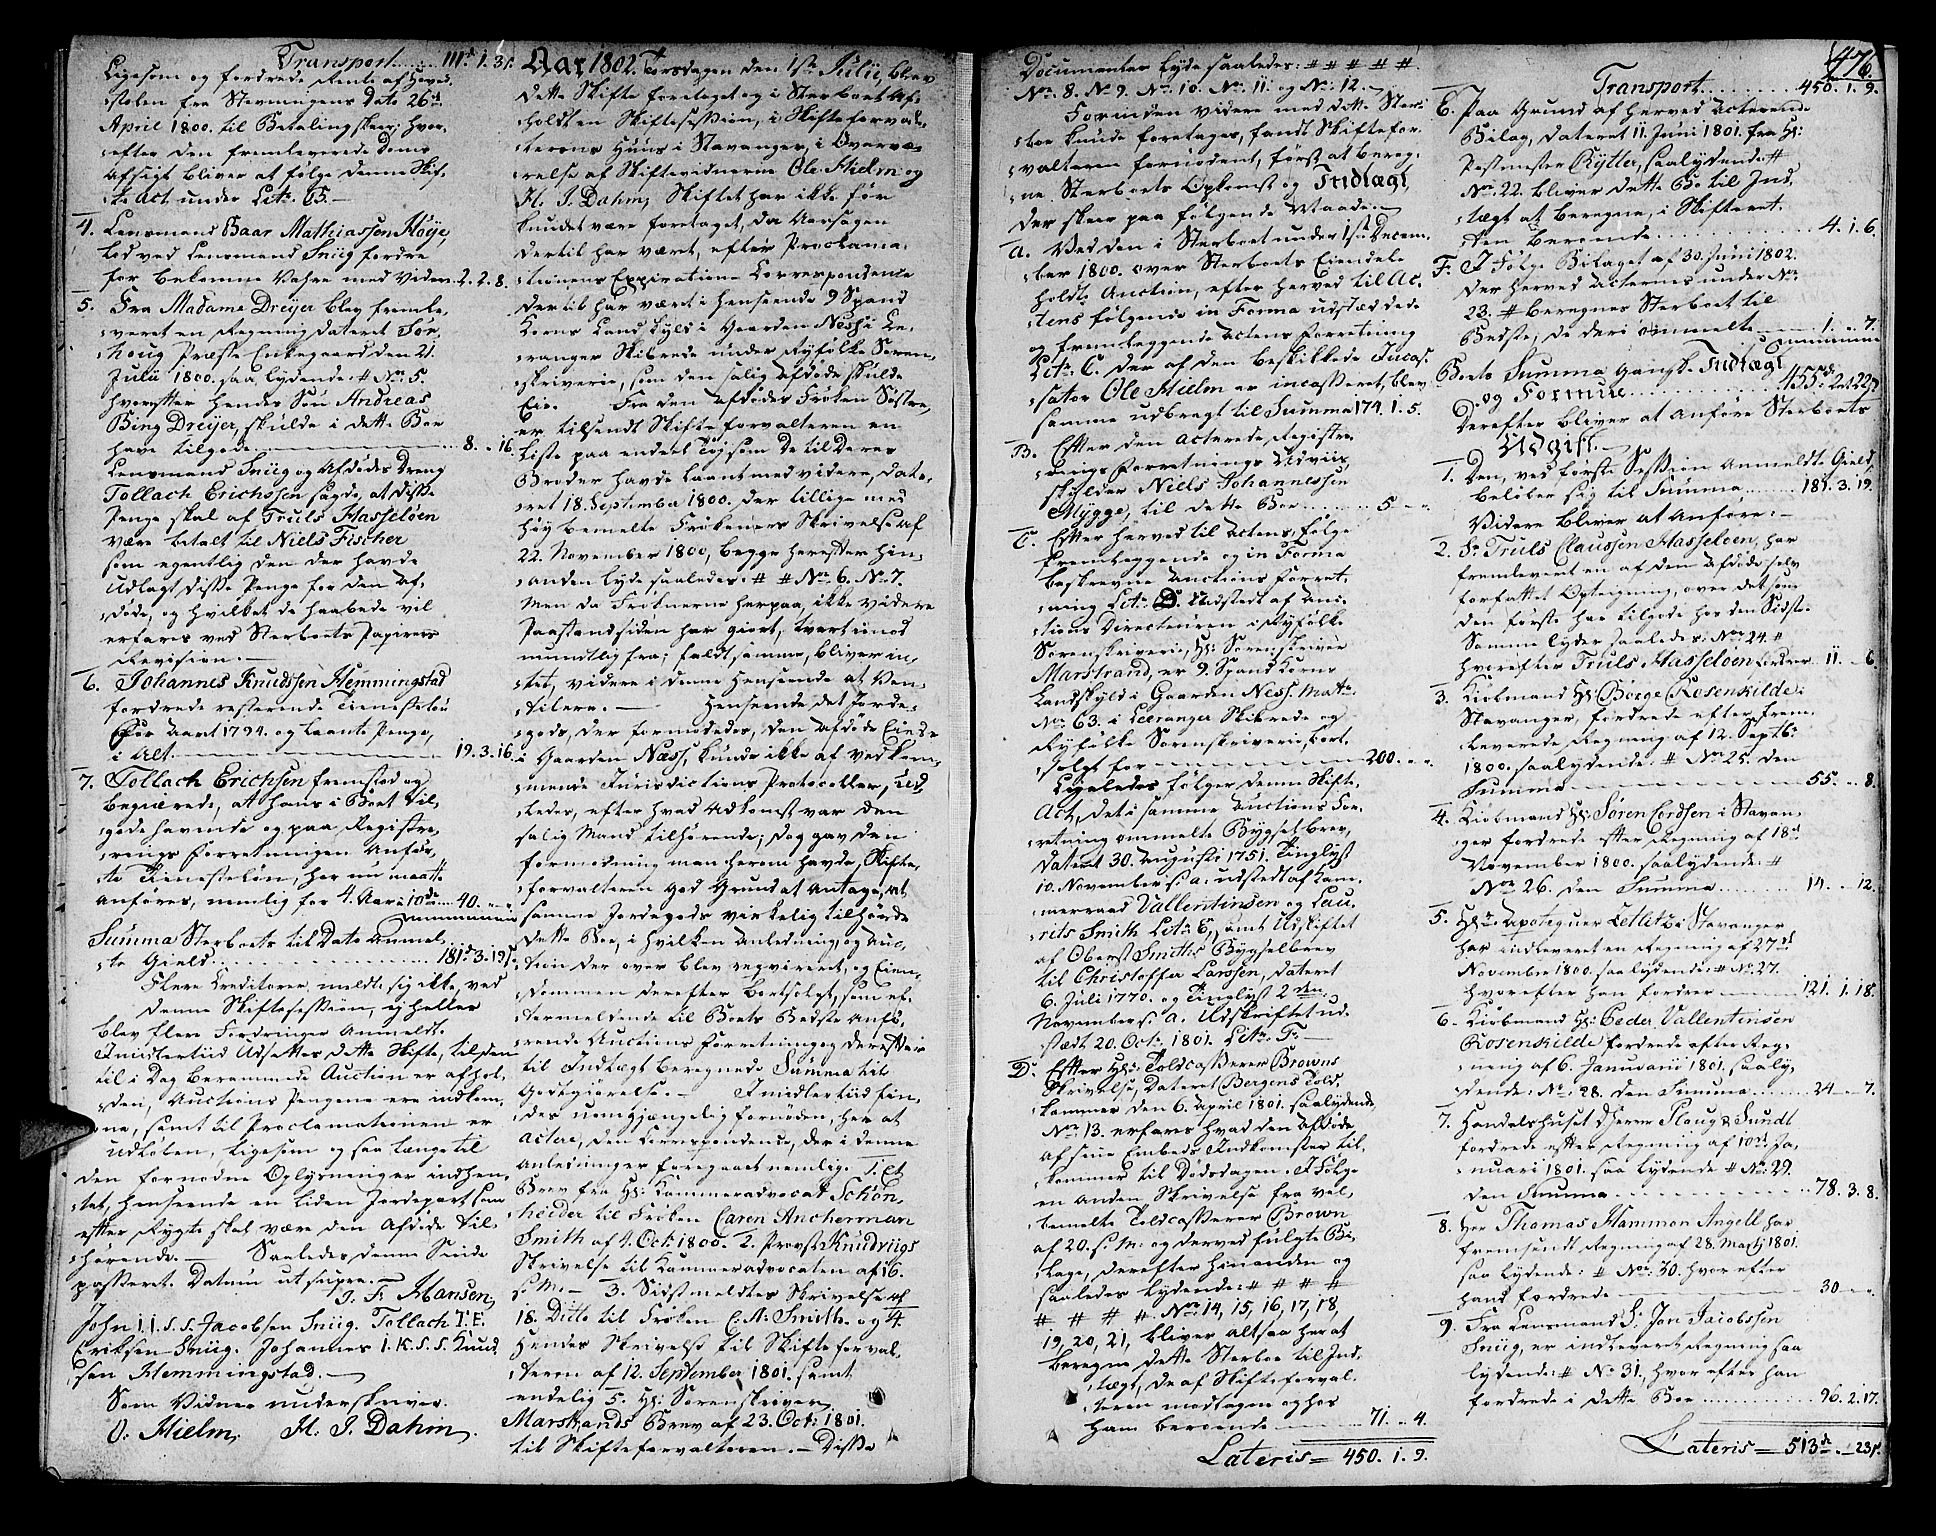 Transport ...... 111d 1. 31.
Ligesom og fordrede Rente af Hoved,
:stolen fra Stevningens Dato 26d
April 1800. til Betaling skeer; hvor,
:efter den fremleverede Doms
Afsigt bliver at følge denne Skif,
:te Act under Litr. B. —
4. Lensmand Baar Mathiassen Høye,
lod ved Lensmand Sniig fordre
for bekomne Vahre med videre 2. 2. 8.
5. Fra Madame Dreyer blev fremle,
:veret en Regning dateret Tor,
:houg Præste Enkegaard den 21.
Julii 1800. saa lydende: # No. 5.
hvorefter hendes Søn Andreas
Bing Dreyer, skulde i dette Boe
have tilgode ... 8. - 16.
Lensmand Sniig og Afdødes Dreng
Tollach Erichssen sagde, at disse
Penge skal af Truls Hasseløen
være betalt til Niels Fischer
som egentlig den der havde
udlagt disse Penge for den af,
:døde, og hvilket de haabede vil
erfares ved Sterboets Papirers
Revision. —
6. Johannes Knudssen Hemmingstad
fordrede resterende Tienesteløn
for Aaret 1794. og laante Penge,
i Alt ... 19. 3. 16.
7. Tollach Erichsen fremstod og
begiærede, at hans i Boet til,
:gode havende og paa Registre,
:rings Forretningen Anfør,
:te Tieneste løn, her nu maatte
anføres, nemlig for 4. Aar i 10de 40. - -
Summa Sterboets til Dato anmel,
:te Gield ... 181d 3. 19s.
Flere Creditorer meldte sig ikke, ved
denne Skiftesession, ej heller
blev flere Fordringer Anmeldt.
Imidlertiid Udsettes dette Skifte, til den
til i Dag berammede Auction er afhol,
:den, Auctions Pengene ere indkom,
:ne, samt til Proclamationen er
udløben, ligesom og saa længe til
den fornødne Oplysninger indhen,
:tet, henseende en liden Jordepart som
efter Rygte skal være den Afdøde til,
:hørende. — Saaledes denne Sinde
passeret. Datum ut supra. —
J. F. Hansen,
John I. I. S. S. Jacobsen Sniig. Tollach T. E.
Eriksen Sniig. Johannes I. K. S. S. Knud,
:sen Hemmingstad. —
Som Vidner underskriver.
O. Hielm, H. J. Dahm.
Aar 1802. Torsdagen den 1ste Julii, blev
dette Skifte foretaget og i Sterboet Af,
:holdt en Skiftesession, i Skifteforval,
:terens Huus i Stavanger, i Overvæ,
:relse af Skiftevidnerne Ole Hielm og
H. J. Dahm, Skiftet har ikke før
kundet være foretaget, da Aarsagen
dertil har vært, efter Proclama,
:tionens Expiration Correspondence
der til har vært i henseende 9 Spand
Korns Land skyld i Gaarden Ness i Le,
:ranger Skibrede under Ryfølke Soren,
:skriverie, som den salig Afdøde skulde
Eie. Fra den afdødes Frøken Søstre,
er tilsendt Skifteforvalteren en
Liste paa endeel Tøy som de til deres
Broder havde laant med videre, date,
:ret 18. September 1800. der tillige med
høy bemelte Frøkeners Skrivelse af
22. November 1800, begge herefter hin,
:anden lyde saaledes: # # No. 6. No. 7.
Men da Frøknerne herpaa, ikke videre
Paastand siden har giort, tvertimod
mundtlig frafaldt samme, bliver in,
:tet, videre i denne henseende at Ven,
:tilere. — Henseende det Jorde,
:gods, der formodedes, den afdøde Eiede
i Gaarden Næss, kunde ikke af vedkom,
:mende Jurisdictions Protocoller, Ud,
:ledes, efter hvad Adkomst var den
salig Mand tilhørende; dog gav den
formodning man herom havde, Skifte,
:forvalteren god Grund at Antage, at
samme Jordegods virkelig tilhørde
dette Boe, i hvilken Anledning, og Auc,
:tion der over blev reqvireret, og Eien,
:dommen derefter bortsolgt, som ef,
:termeldende til Boets Bedste anfø,
:rende Auctions Forretning og derefter
til Indtægt beregnede Summa til
Godtgiørelse. — Imidlertiid fin,
:des uomgjængelig fornøden, her at
actere, den Correspondence, der i denne
anledninger foregaaet nemlig. 1. Et
Brev fra Hr: Kammeradvocat Schön,
:heider til Frøken Caren Ancherman
Smith af 4. Octr 1800. 2. Provst Knudviigs
Skrivelse til Kammeradvocaten af 16.
s. M. — 3. Sidstmeldtes Skrivelse af
18. Ditto til Frøken C. A. Smith. og 4.
Hendes Skrivelse til Skifteforval,
:teren af 12. September 1801. samt
endelig 5. Hr: Sorenskriver
Marstrands Brev af 23. Octr 1801.
til Skifteforvalteren. — Disse
476.
Documenter lyde saaledes: # # # # #.
No. 8. No 9. No. 10. No. 11. og No. 12. —
Forinden videre med dette Ster,
:boe kunde foretages, fandt Skiftefor,
:valteren fornødent, først at bereg,
:ne Sterboets Opkomst og Indtægt,
der skeer paa følgende Maade. —
A. Ved den i Sterboet under 1ste Decem,
:ber 1800. over Sterboets Eiendele
holdte Auction, efter herved til Ac,
:tens følgende in Forma udstædede
og fremleggende Actens Forretning
Litr. C. der af den beskikkede Incas,
:sator Ole Hielm er incasseret, blev
samme udbragt til Summa 174. 1. 5.
B. Efter den acterede Registre,
:rings Forretnings Udviis,
skylder Niels Johannessen
Mygge, til dette Boe ... 5. - -
C. Efter herved til Actens følge
fremleggende og in Forma
beskrevne Auctions Forret,
:ning Litr. D. Udstedt af Auc
:tions Directeuren i Ryfølke
Sorenskriverie, Hr: Sorenskriver
Marstrand, er 9. Spand Korns
Landskyld i Gaarden Ness. Matr.
No. 63. i Leeranger Skibrede og
Ryfølke Sorenskriverie, bort,
:solgt for ... 200. - -
Ligeledes følger denne Skifte,
:Act, det i samme Auctions For,
:retning ommelte Bygsel brev,
dateret 30. Augusti 1751. Tinglyst
10. November s. a. udstedt af Kam,
:merraad Vallentinsen og Lau,
:rits Smith Litr. E, samt Udskriftet
af Oberst Smiths Bygselbrev
til Christoffer Larssen, dateret
6. Juli 1770. og Tinglyst 2den
November s. a. Udskriftet ud,
:stædt 20. Octr 1801. Litr. F. —
D. Efter Hr: Toldcasserer Browns
Skrivelse, Dateret Bergens Told,
:kammer den 6. April 1801. saalydende,
No. 13. erfares hvad den afdøde,
af sine Embeds Indkomster til,
:kommer til Dødsdagen. I Følge
en anden Skrivelse fra vel,
:bemelte Toldcasserer Brown
af 20. s. M: og derved fulgte Bi,
:lage, derefter hinanden og
saaledes lydende: # # # #
# # # #. No. 14, 15, 16, 17, 18,
19, 20, 21, bliver altsaa her at
beregne dette Sterboe til Ind,
:tægt, de af Skifteforval,
:teren modtagen og hos
ham beroende ... 71. - 4.
Lateris = 450. 1. 9.
Transport ........ 450. 1. 9.
E. Paa Grund af herved Acterende
Bilag, dateret 11. Juni 1801. fra Hr:
Postmester Rytter, saalydende: #
No. 22. bliver dette Boe til Ind,
:tægt at beregne, i Skifteret,
:ten beroende ... 4. 1. 6.
F. I Følge Bilaget af 30. Juni 1802.
der herved Acternes under No.
23. # beregnes Sterboet til
Bedste, de deri ommelte ... 1. - 7.
Boets Summa gandske Indtægt
og Formue ... 455rd 2ort 22s
Derefter bliver at anføre Sterboets
Udgift. —
1. Den, ved første Session anmeldte Gield,
beløber sig til Summa ... 181. 3. 19.
Videre bliver at anføre: —
2. Sr. Truls Claussen Hasseløen, har
fremlevert en af den afdøde selv
forfattet Optegning, over det som
den første har tilgode hos den Sidste.
Samme lyder saaledes: No. 24. #
hvorefter Truls Hasseløen fordrer 11. - 6.
3. Kiøbmand Hr: Børge Rosenkilde i
Stavanger, fordrede efter frem,
:leverede Regning af 12. Septb:
1800. saalydende: # No. 25. den
Summa ... 55. - 8.
4. Kiøbmand Hr: Søren Cordsen i Stavan,
:ger fordrede efter Regning af 18d
November 1800. saalydende: #
No. 26. den Summa ... 14. - 12.
5. Hr: Apotequer Zetlitz i Stavanger
har indleveret en Regning af 27d
November 1800. saalydende: # No. 27.
hvorefter han fordrer ... 121. 1. 18.
6. Kiøbmand Hr: Peder Vallentinsen
Rosenkilde fordrede efter Reg,
:ning af 6. Januarii 1801. saaly,
:dende: No. 28. den Summa ... 24. - 7.
7. Handelshuset d'Herrer Ploug & Sundt
fordrede efter Regning af 10d Ja,
:nuari 1801. saa lydende # No. 29.
den Summa ... 78. 3. 8.
8. Herr Thomas Hammon Angell har
fremsendt Regning af 28. Martj 1801.
saa lydende: # No. 30. hvor efter
hand fordrede ... 30. - -
9. Fra Lensmand S. Jon Jacobssen
Sniig, er indleveret Regning saa
lydende: # No 31, hvor efter han
fordrede i dette Boe ... 96. 2. 17.
Lateris = 513d - 23s.